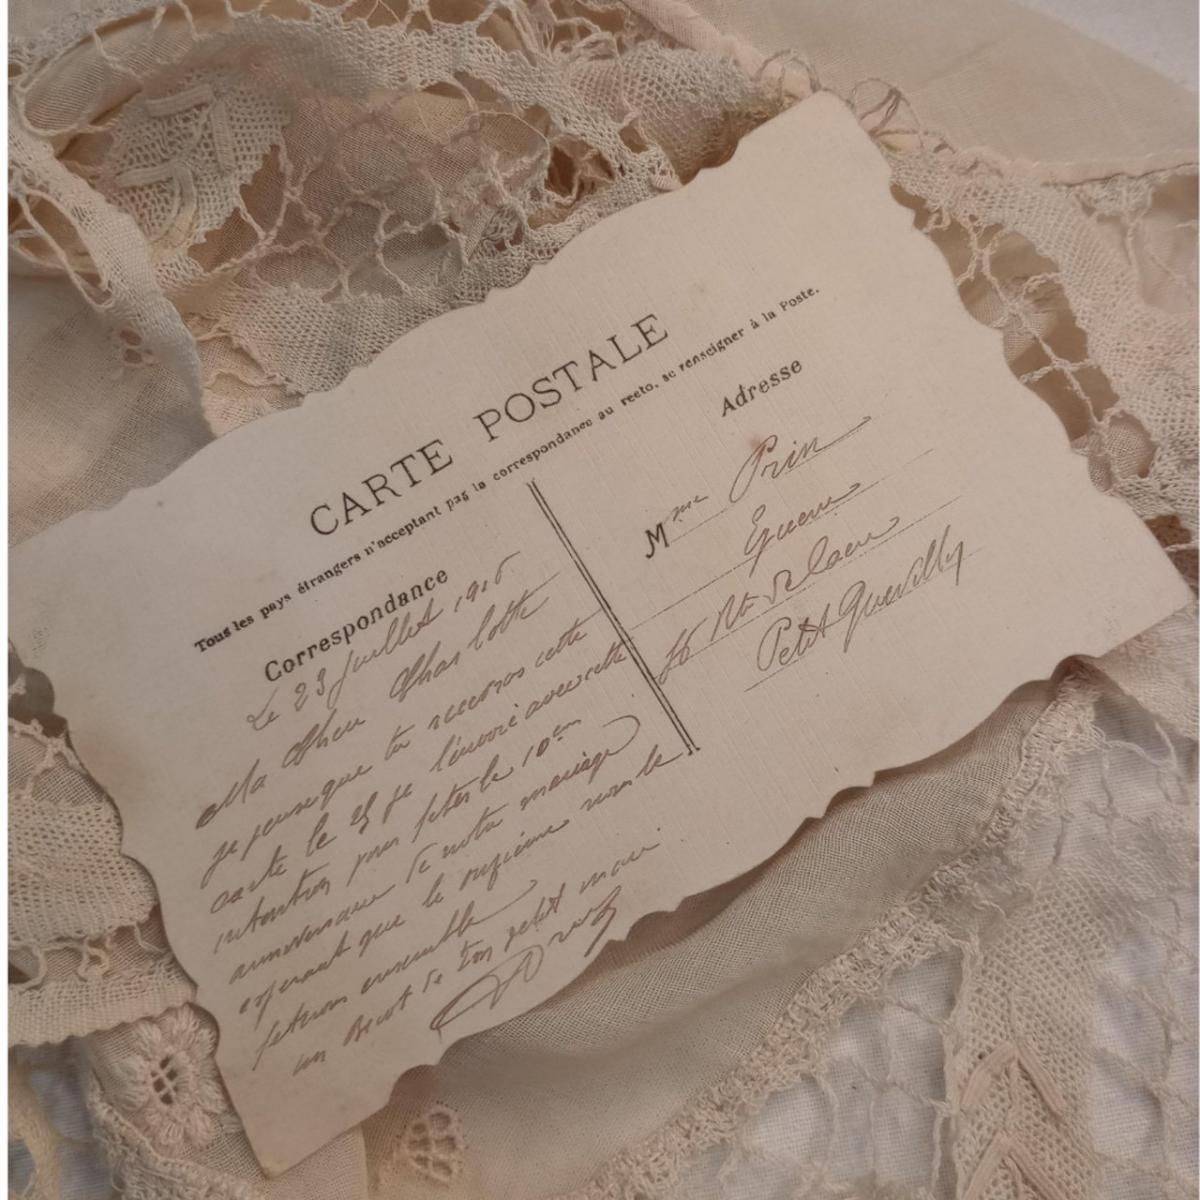 CARTE POSTALE
Tous les pays étrangers n'acceptant pas la correspondance au recto, se renseigner à la Poste.
Correspondance
Le 23 Juillet 1916
Ma Cher Charlotte
je pense que tu recevras cette
carte le 25 je l'envoie avec cette
intention pour fêter le 10em
anniversaire de notre mariage
esperant que le onzième nous le
feterons ensemble
un bécot de ton petit mari
Adresse
Mme Prin
Petit Quevilly